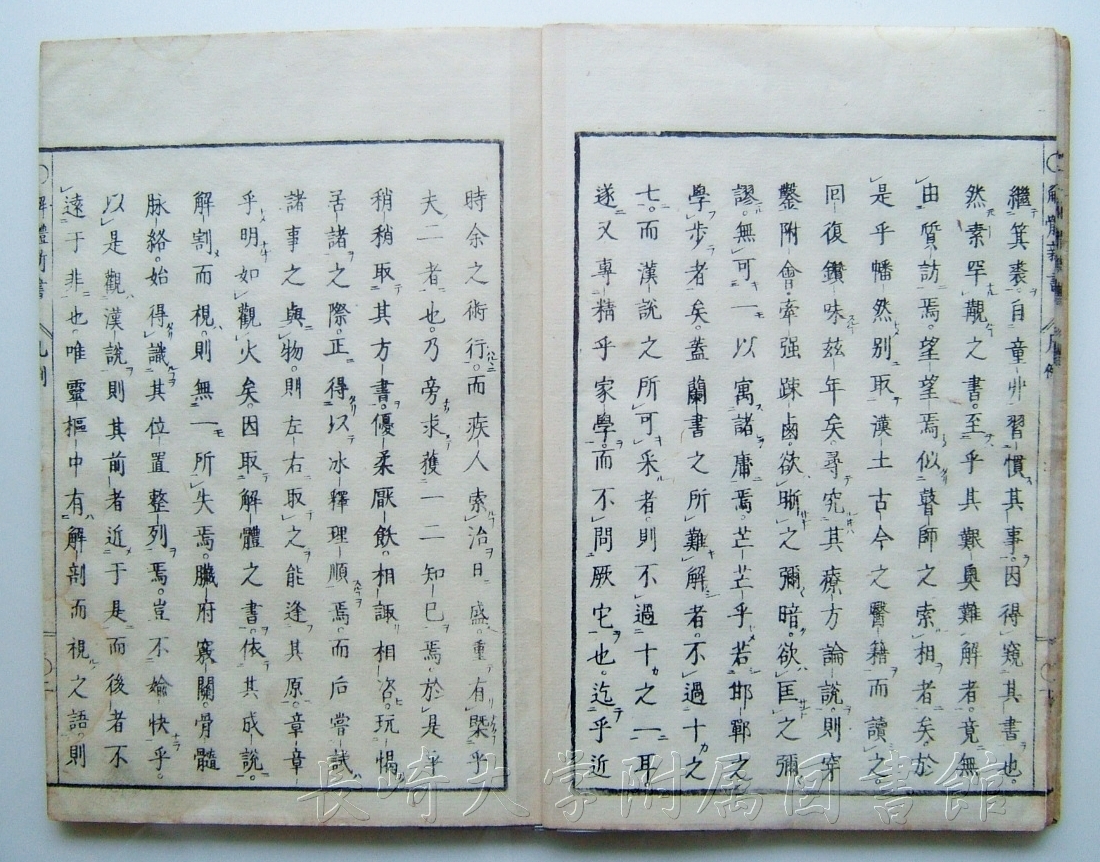 繼箕裘。自童丱習慣其事。因得窺其書也。
然素罕覯之書。至乎其艱奥難解者。竟無
由質訪焉。望望焉似瞽師之索相者矣。於
是乎幡然別取漢土古今之醫籍而讀之。
回復鑽味茲年矣。尋究其療方論說。則穿
鑿附會。牽强疎鹵。欲晣之彌暗。欲匡之彌
謬。無可一以寓諸庸焉。芒芒乎若邯鄲之
學步者矣。蓋蘭書之所難解者。不過十之
七。而漢說之所可采者。則不過十之一耳
遂又專精乎家學。而不問厥它也。迄乎近
時余之術行。而疾人索治日盛。重有槩乎
夫二者也。乃旁求獲一二知已焉。於是乎
稍稍取其方書。優柔厭飫。相諏相咨。玩愒
居諸之際。正得以冰釋理順焉。而后嘗試
諸事之與物。則左右取之能逢其原。章章
乎明如觀火矣。因取解體之書。依其成說。
解割而視。則無一所失焉。臟府竅關。骨髓
脉絡。始得識其位置整列焉。豈不婾快乎。
以是觀漢說。則其前者近于是。而後者不
遠于非也。唯靈樞中有解剖而視之語。則
解體新書
凡例
長崎大学附属図書館